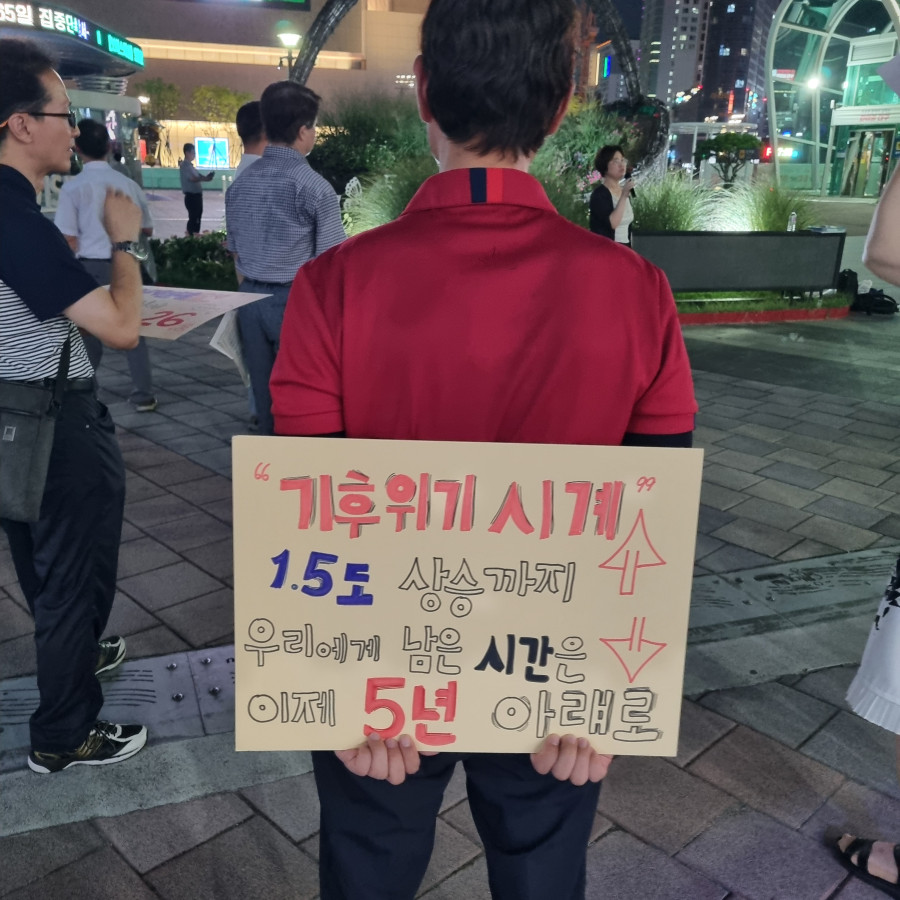 65일 집중
26
“기후위기 시계”
1.5도 상승까지
우리에게 남은 시간은
이제 5년 아럐로